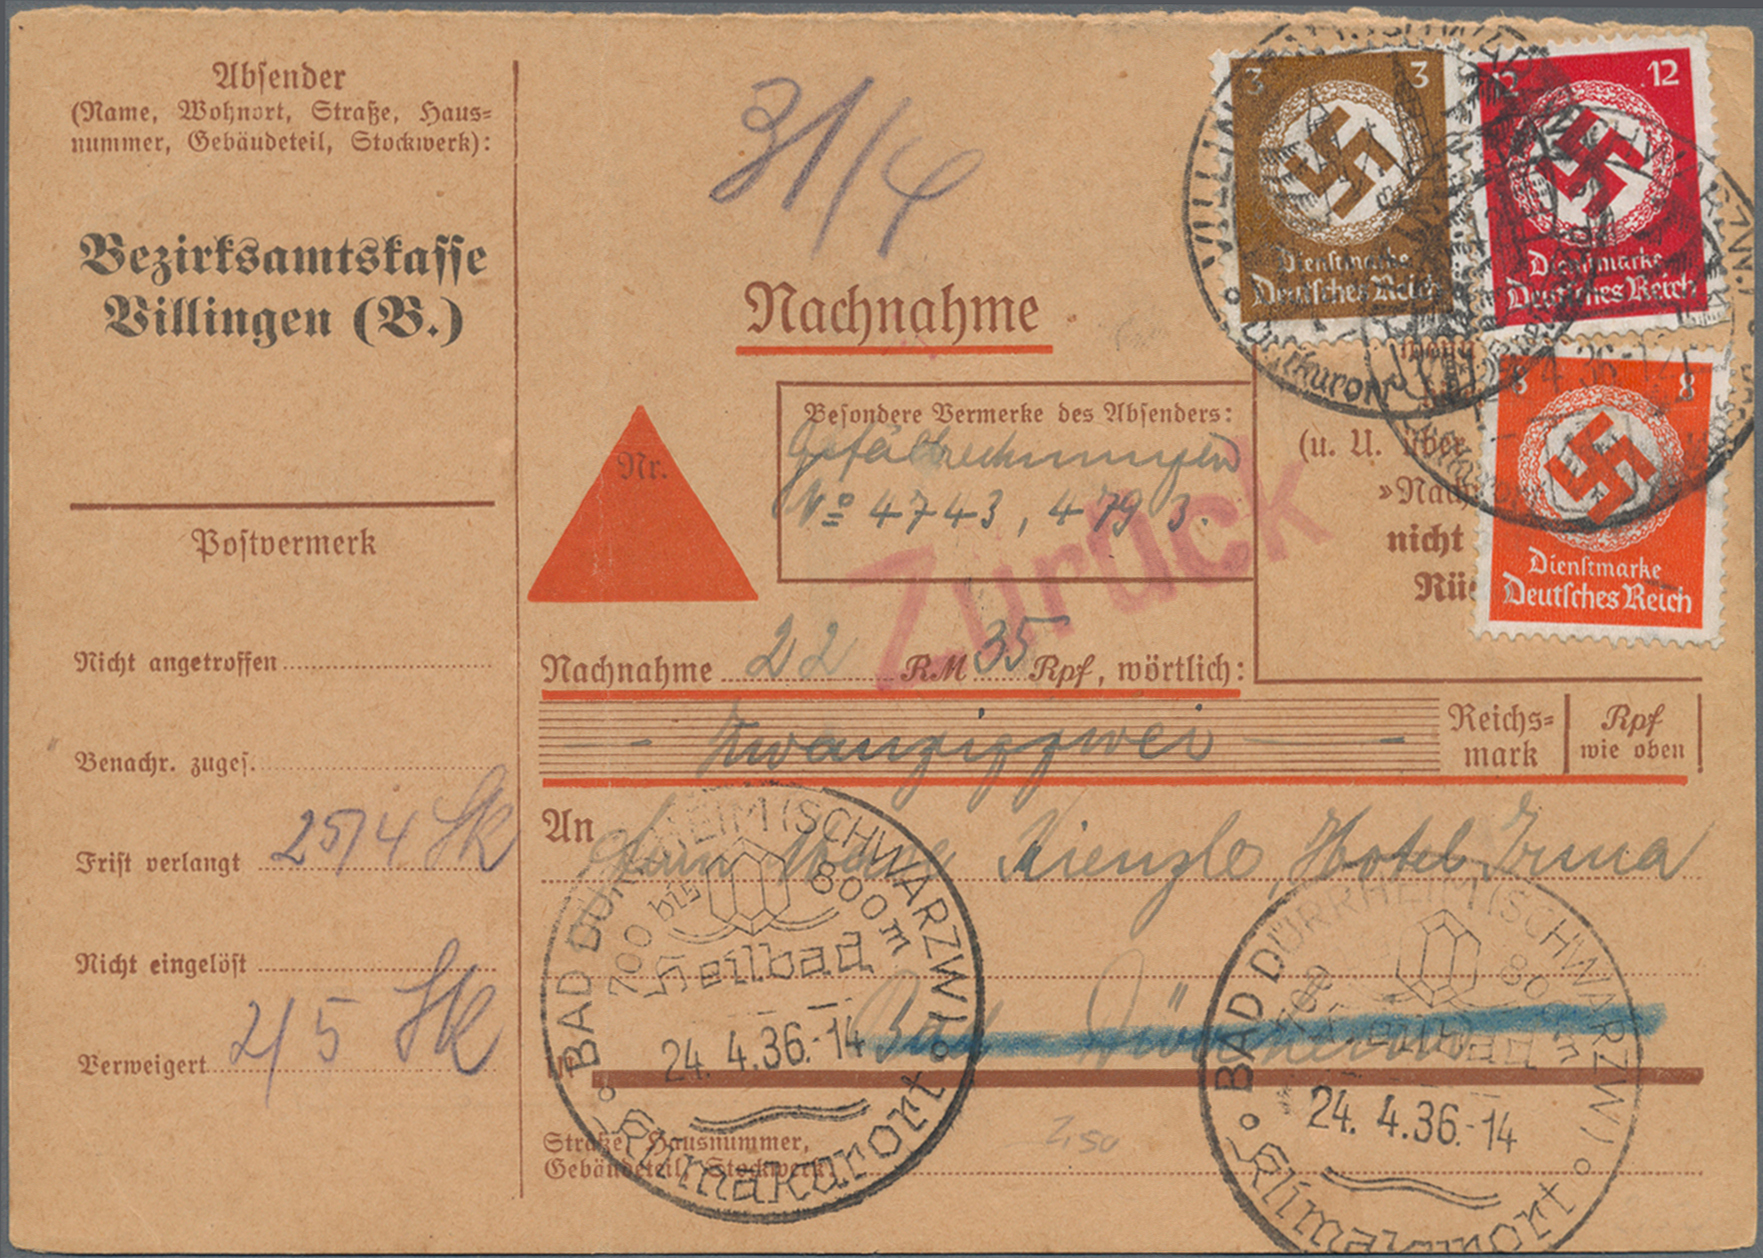 Absender
(Name, Wohnort, Straße, Haus=
nummer, Gebäudeteil, Stockwerk):
Bezirksamtskasse
Villingen (B.)
Postvermerk
Nicht angetroffen
Benachr. zuges.
Frist verlangt 25/4
Nicht eingelöst
Verweigert
31/4
Nachnahme
Nr.
Besondere Vermerke des Absenders:
No 4743, 4793.
Zurück
(u. U. über
»Nach
nicht
Rü
3 3
Dienstmarke
Deutsches Reich
12 12
Dienstmarke
Deutsches Reich
8 8
Dienstmarke
Deutsches Reich
Nachnahme 22 RM 35 Rpf, wörtlich:
zwanzigzwei
Reichs=
mark
Rpf
wie oben
An
Kienzle, Hotel Irma
Bad Dürrheim
Straße, Hausnummer,
Gebäudeteil, Stockwerk
BAD DÜRRHEIM (SCHWARZW)
700 bis 800 m
Heilbad
24. 4.36.-14
Klimakurort
BAD DÜRRHEIM (SCHWARZW)
Heilbad
24. 4.36.-14
Klimakurort